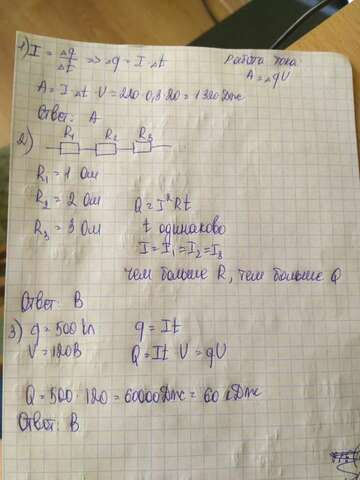 1) I = Δq/Δt => Δq = I Δt
Работа тока:
A = ΔqU
A = I Δt · U = 220 · 0,3 · 20 = 1320 Дж
Ответ: A
2) R₁ R₂ R₃
R₁ = 1 Ом
R₂ = 2 Ом Q = I²Rt
R₃ = 3 Ом t одинаково
I = I₁ = I₂ = I₃
чем больше R, тем больше Q
Ответ: B
3) q = 500 Кл q = It
U = 120В Q = It · U = qU
Q = 500 · 120 = 60000Дж = 60 кДж
Ответ: B